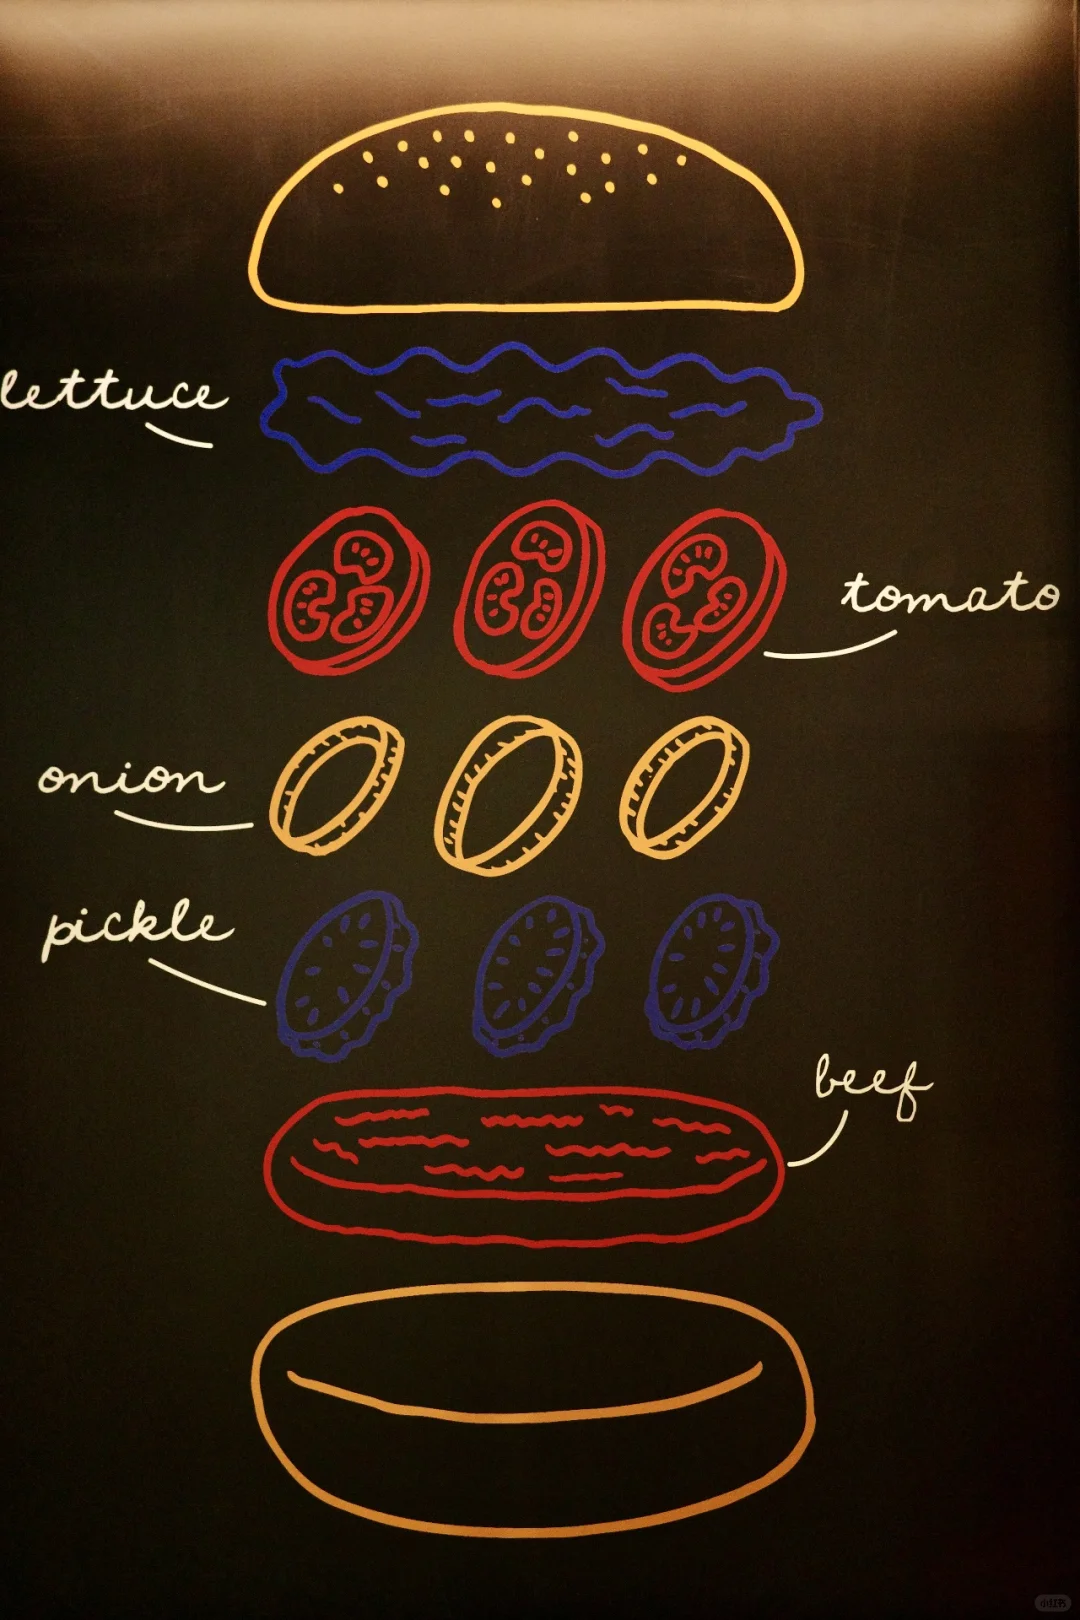 lettuce
tomato
onion
pickle
beef
小红书